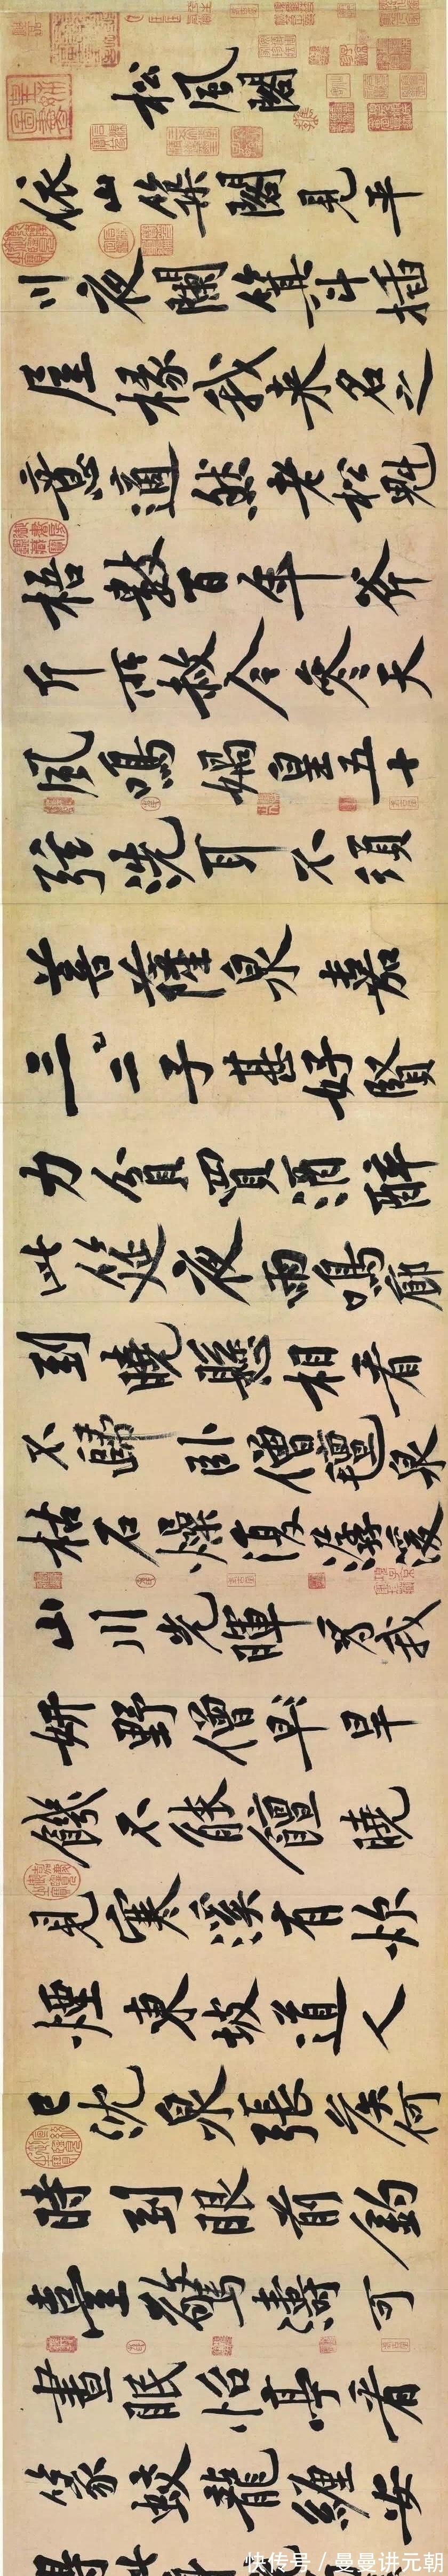 松風閣
依山築閣見平
川夜闌箕斗插
屋椽我來名之
意適然老松魁
梧數百年斧
斤所赦今參天
風鳴媧皇五十
弦洗耳不須
菩薩泉嘉
三二子甚好賢
力貧買酒醉
此筵夜雨鳴廊
到曉懸相看
不歸臥僧氈泉
枯石燥復潺湲
山川光暉為我
妍野僧早旱
飢不能饘曉
見寒溪有炊
煙東坡道人
已沈泉張侯何
時到眼前釣
臺驚濤可
晝眠怡亭看
篆蛟龍纏安
快传号 / 曼曼讲元朝